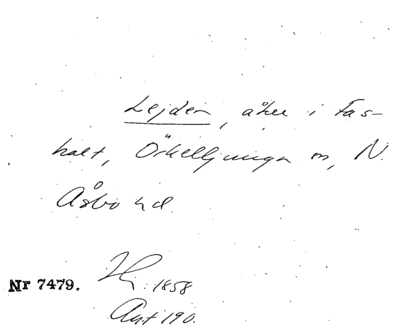 Lejden, åker i Fas-
halt, Örkelljunga sn, N.
Åsbo hd.
Nr 7479. : 1858
Avt 190.